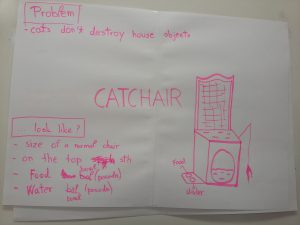 Problem
- cats don't destroy house objects
CATCHAIR
look like?
- size of a normal chair
- on the top sth
- Food bowl (panda)
- Water bowl (panda)
Food
water